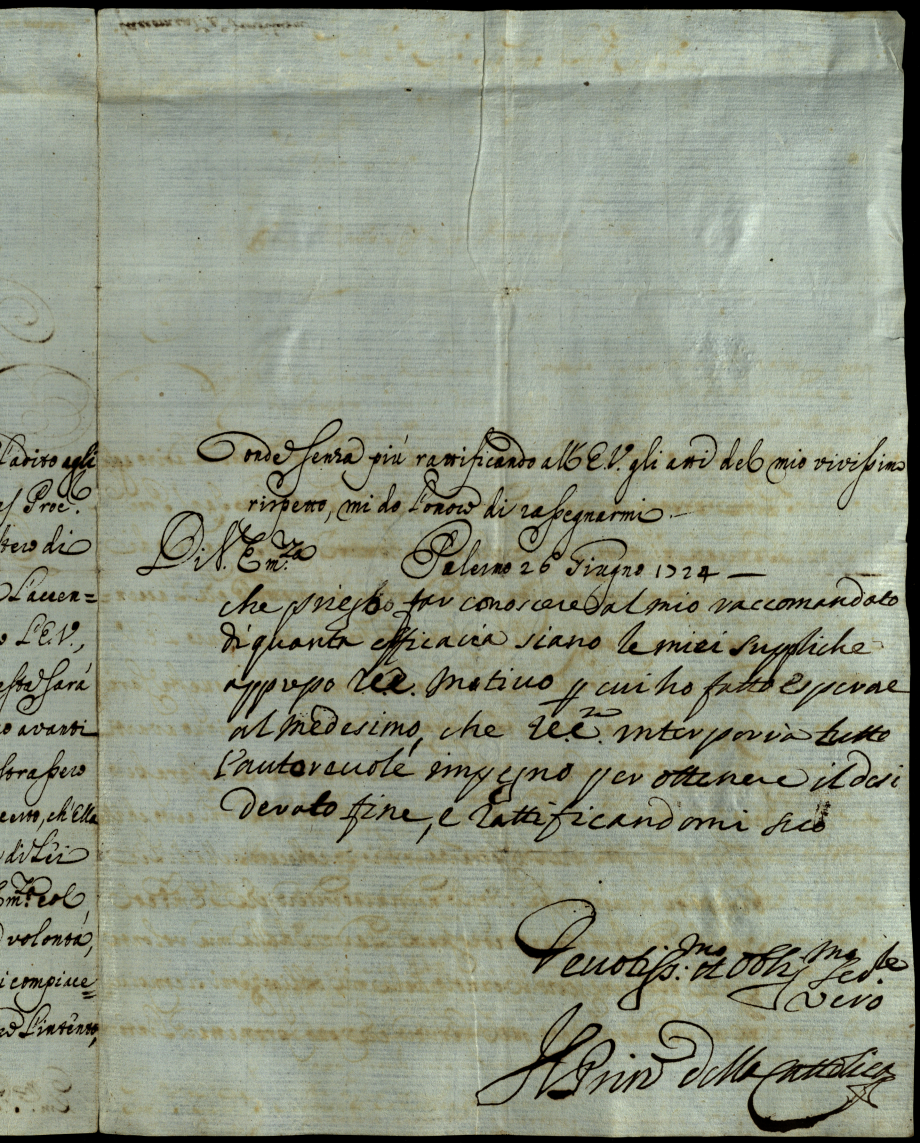 l'adito agli
Proc.
di
L'accen=
L'E.V.,
sarà
avanti
ch'Ella
di Lei
Em.za col
volontà,
compiace=
L'intento,
Onde senza più rattificando all'E.V. gli atti del mio vivissimo
rispetto, mi do l'onore di rassegnarmi
Di V. Em.za Palermo 26 Giugno 1724
che priego far conoscere al mio raccomandato
di quanta efficacia siano le miei suppliche
appreso V.E. motivo p cui ho fatto esperare
al medesimo, che V.E. interporrà tutto
l'autorevole impegno per ottenere il desi
derato fine, e rattificandomi
Devotiss.mo et Obblig.mo
vero
Il Prin.e della Cattolica